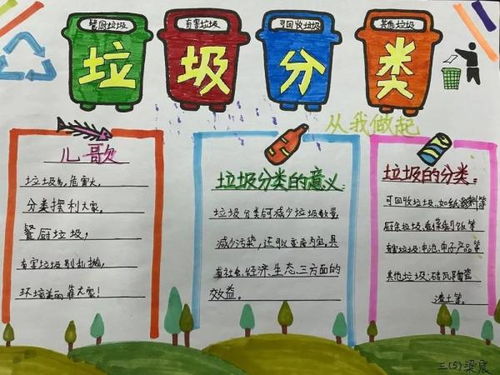 餐厨垃圾
有害垃圾
可回收垃圾
其他垃圾
垃
圾
分
类
从我做起
儿歌
垃圾多,危害大,
分类摆利大家。
餐厨垃圾,
有害垃圾别乱抛,
环境美丽靠大家!
垃圾分类的意义:
垃圾分类可减少垃圾数量,
减少污染,
社会、经济、生态、三方面的
效益。
垃圾的分类:
可回收垃圾:如纸
厨余垃圾:
有害垃圾:电池、电子产品等
其他垃圾:
渣土等。
三(5)梁宸